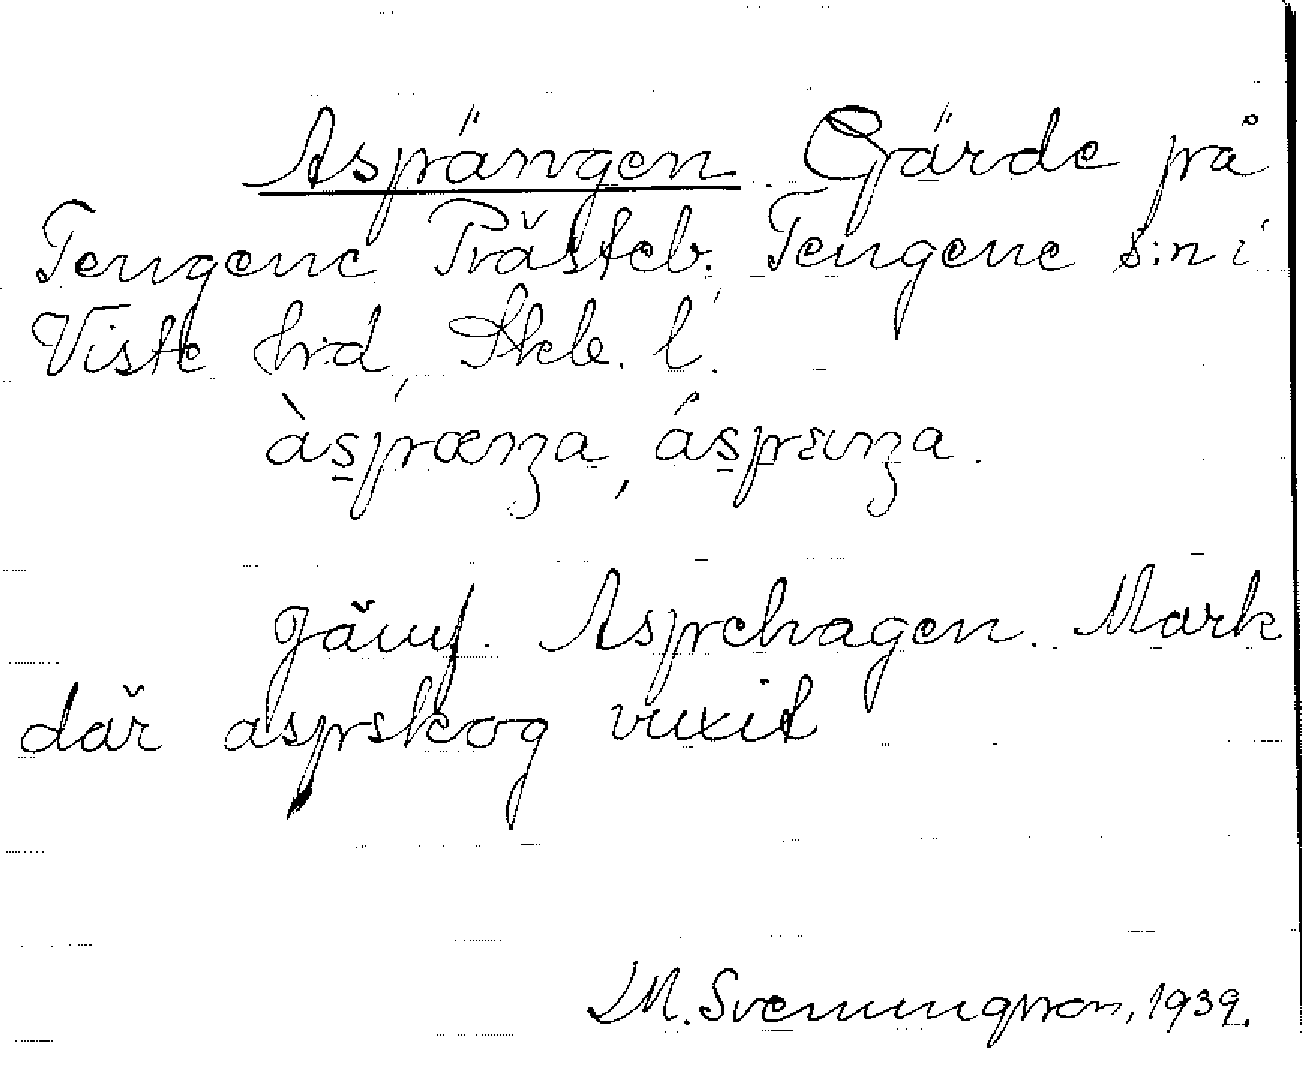 Aspängen. Gärde på
Tengene Prästeb. Tengene s:n i
Viste hrd, Skb. l.
àspæŋa, áspæŋa.
Jämf. Aspehagen. Mark
där aspskog vuxit
M. Svenungsson, 1939.